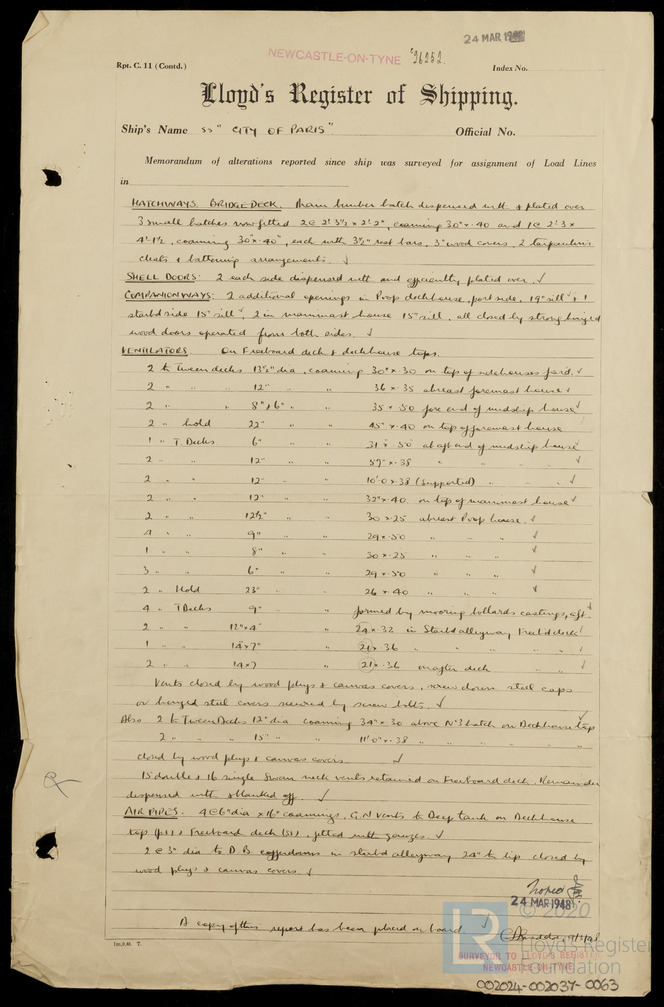 24 MAR 1948
NEWCASTLE-ON-TYNE
96252
Rpt. C. 11 (Contd.)
Index No.
Lloyd's Register of Shipping.
Ship's Name ss "CITY OF PARIS" Official No.
Memorandum of alterations reported since ship was surveyed for assignment of Load Lines
in
HATCHWAYS. BRIDGE DECK. Main bunker hatch dispensed with & plated over
3 small hatches now fitted 2 @ 2'3½ × 2'2", coaming 30" × .40 and 1 @ 2'3 ×
4'1½, coaming 30" × .40", each with 3½" rest bars, 3" wood covers, 2 tarpaulins
cleats & battening arrangements. ✓
SHELL DOORS: 2 each side dispensed with and efficiently plated over. ✓
COMPANIONWAYS: 2 additional openings in Poop deckhouse, port side, 19" sill ✓ & 1
starbd side 15" sill ✓ 2 in mainmast house 15" sill, all closed by strong hinged
wood doors operated from both sides. ✓
VENTILATORS. On Freeboard deck & deckhouse tops.
2 to Tween decks 13½" dia, coaming 30" × .30 on top of sidehouses ford. ✓
2 " " " 12" " " 36 × .35 abreast foremast house ✓
2 " " 8" & 6" " " 35 × .50 fore end of midship house ✓
2 " Hold 22" " " 45" × .40 on top of foremast house
1 " T. Decks 6" " " 31 × .50 at aft end of midship house ✓
2 " " 12" " " 57" × .38 " " " ✓
2 " " 12" " " 10'0 × .38 (supported) " " ✓
2 " " 12" " " 32" × .40 on top of mainmast house ✓
2 " " 12½" " " 30 × .25 abreast Poop house. ✓
4 " " 9" " " 29 × .50 " " " ✓
1 " " 8" " " 30 × .25 " " " ✓
3 " " 6" " " 29 × .50 " " " ✓
2 " Hold 23" " " 26 × .40 " " " ✓
4 " T Decks 9" " formed by mooring bollards castings, aft. ✓
2 " " 12" × 4" " 24 × .32 in Starbd alleyway Freebd deck ✓
1 " " 14 × 7" " 21 × .36 " " " " ✓
2 " " 14 × 7 " 21 × .36 on after deck " " ✓
Vents closed by wood plugs & canvas covers, screw down steel caps
or hinged steel covers secured by screw bolts. ✓
Also 2 to Tween Decks 12" dia coaming 34" × .30 above No 3 hatch on Deckhouse top ✓
2 " " " 15" " " 11'0" × .38 " " " " "
closed by wood plugs & canvas covers. ✓
15 double & 16 single Swan neck vents retained on Freeboard deck. Remainder
dispensed with & blanked off. ✓
AIR PIPES. 4 @ 6" dia × 16" coamings, G.N vents to Deep tank on Deckhouse
top (P&S) & Freeboard deck (S), fitted with gauzes. ✓
2 @ 3" dia to D.B. cofferdams in starbd alleyway 24" to lip closed by
wood plugs & canvas covers. ✓
Noted
24 MAR 1948
A copy of this report has been placed on board. ✓
SURVEYOR TO LLOYD'S REGISTER
NEWCASTLE-ON-TYNE
LR
© 2020
Lloyd's Register
Foundation
002024-002037-0063